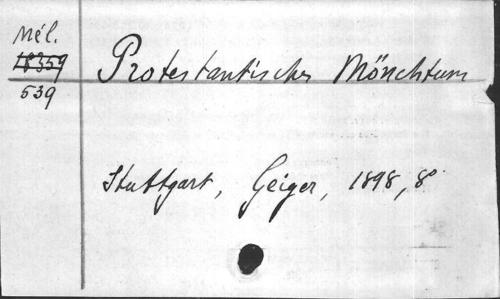 Mél.
18359
539
Protestantisches Mönchtum
Stuttgart, Geiger, 1898, 8°